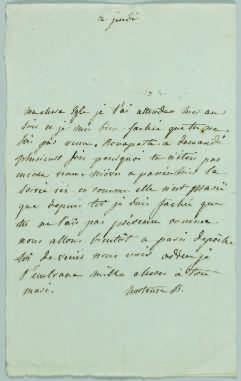 ce jeudi
ma chere Egle je t'ai attendu hier au
soir et je suis bien fachée que tu ne
sois pas venue. Bonaparte a demandé
plusieurs fois pourquoi tu n'étois pas
encore venue
soirée ici et comme elle n'est mariée
que depuis toi je suis fachée que
tu ne l'ais pas prévenue comme
nous allons bientôt a paris depêche
toi de venir nous voir adieu je
t'embrasse mille choses à ton
mari.
hortense B.